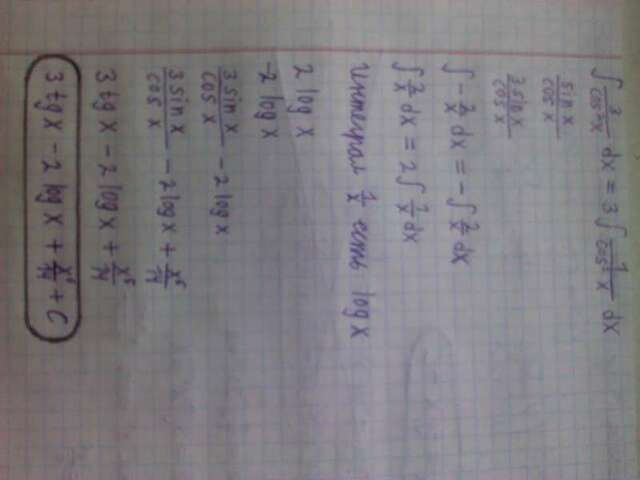 ∫ 3/cos²x dx = 3 ∫ 1/cos²x dx
sin x/cos x
3 sin x/cos x
∫ -2/x dx = -∫ 2/x dx
∫ 2/x dx = 2 ∫ 1/x dx
интеграл 1/x есть log x
2 log x
-2 log x
3 sin x/cos x - 2 log x
3 sin x/cos x - 2 log x +
3 tg x - 2 log x +
3 tg x - 2 log x + + C